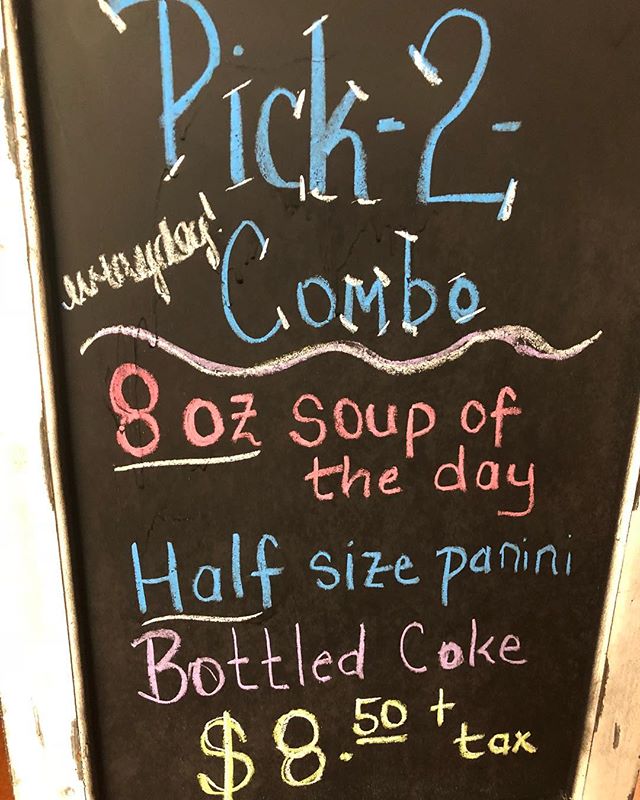 Pick-2-
everyday!
Combo
8 oz soup of
the day
Half size panini
Bottled Coke
$8.50 + tax